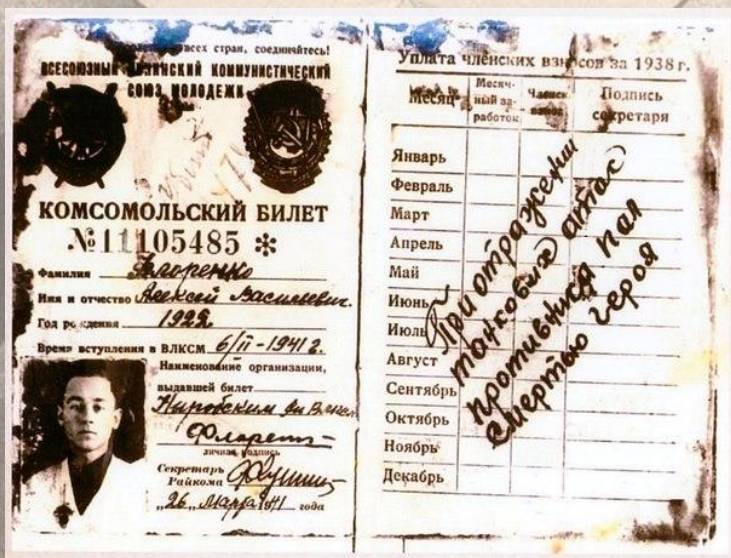 всех стран, соединяйтесь!
ВСЕСОЮЗНЫЙ ЛЕНИНСКИЙ КОММУНИСТИЧЕСКИЙ
СОЮЗ МОЛОДЕЖИ
КОМСОМОЛЬСКИЙ БИЛЕТ
№11105485 *
Фамилия
Имя и отчество Алексей Васильевич
Год рождения 1922
Время вступления в ВЛКСМ 6/II-1941 г.
Наименование организации,
выдавшей билет
Кировским
личная подпись
Секретарь
Райкома
„26„ Марта 1941 года
Уплата членских взносов за 1938 г.
Месяц Месяч-ный за-работок Членск. взнос Подпись секретаря
Январь
Февраль
Март
Апрель
Май
Июнь
Июль
Август
Сентябрь
Октябрь
Ноябрь
Декабрь
При отражении
танковых атак
противника пал
смертью героя